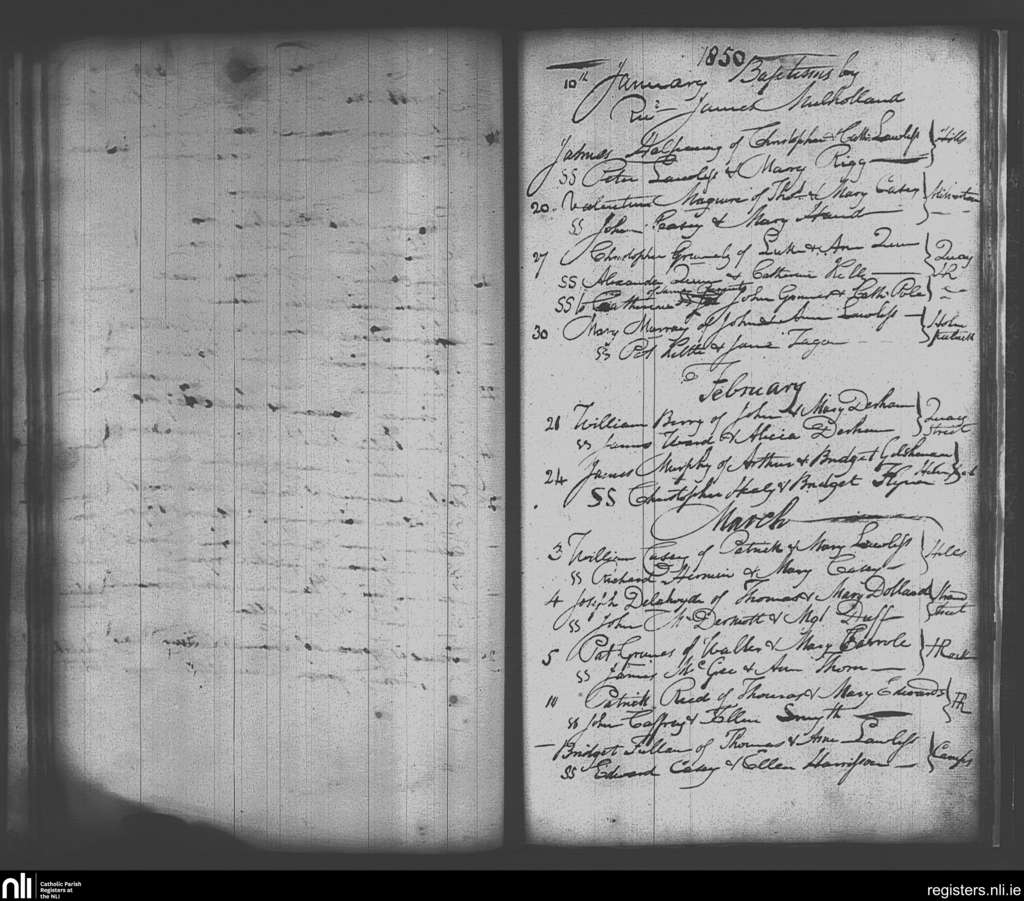 1850
10th January Baptisms by
Rev. James Mulholland
James Halpenny of Christopher & Cath Lawless } Hills
SS Peter Lawless & Mary Rigg
20 Valentine Maguire of Thos. & Mary Casey
SS John Casey & Mary Hand
27 Christopher Grimely of Luke & Ann Quin } Quay
SS Alexander Quinn & Catherine Kelly
SS to Catherine John Grimes & Cath
30 Mary Murray of John & Ann Lawless } Holm
SS Pat & Jane
February
21 William Berry of John & Mary Derham } Quay
SS James Ward & Alicia Derham Street
24 James Murphy of Arthur & Bridget
SS Christopher Healy & Bridget Flynn
March
3 William Casey of Patrick & Mary Lawless } Hills
SS Richard & Mary Casey
4 Joseph Delahoyde of Thomas & Mary Dollard } Strand
SS John McDermott & Mgt Duff Street
5 Pat Grimes of Walter & Mary Carrole
SS James McGee & Ann Thorn
10 Patrick Reed of Thomas & Mary Edwards
SS John Caffrey & Ellen Smyth
Bridget Fullam of Thomas & Anne Lawless } Camps
SS Edward Casey & Ellen Harrisson
nli
Catholic Parish
Registers at
the NLI
registers.nli.ie